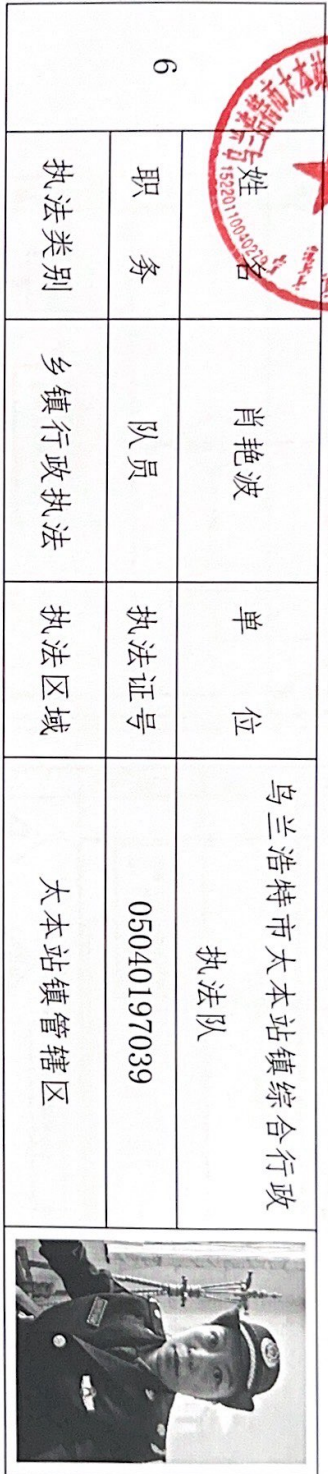 6
姓名 肖艳波 单位 乌兰浩特市太本站镇综合行政
执法队
职务 队员 执法证号 05040197039
执法类别 乡镇行政执法 执法区域 太本站镇管辖区
乌兰浩特市太本站